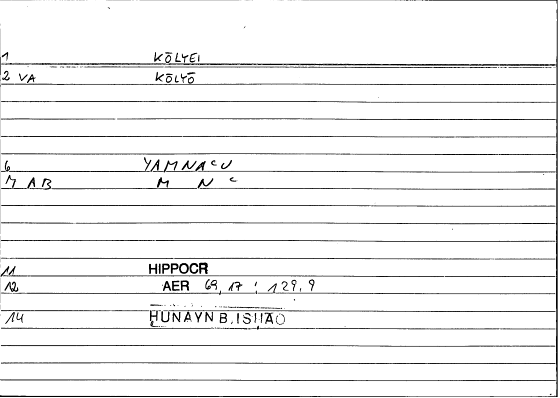 1 KŌLYEI
2 VA KŌLYŌ
6 YAMNAᶜU
7 AB M N ᶜ
11 HIPPOCR
12 AER 69,17 : 129,9
14 HUNAYN B. ISHAQ